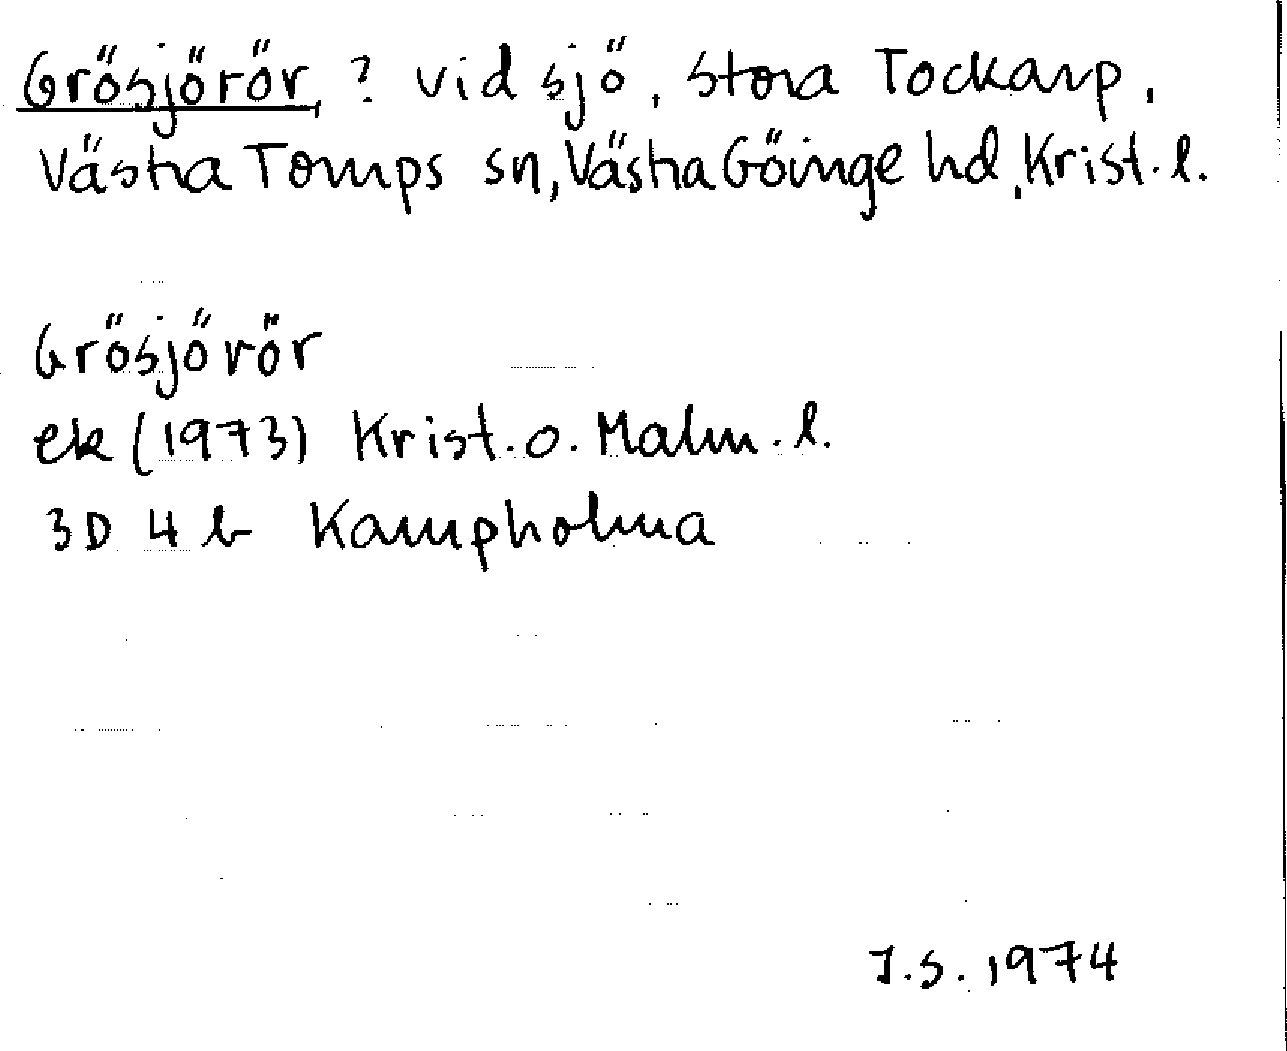 Grösjörör, ? vid sjö, Stora Tockarp,
Västra Torups sn, Västra Göinge hd, Krist. l.
Grösjörör
ek (1973) Krist. o. Malm. l.
3D 4 b Kampholma
I.S. 1974